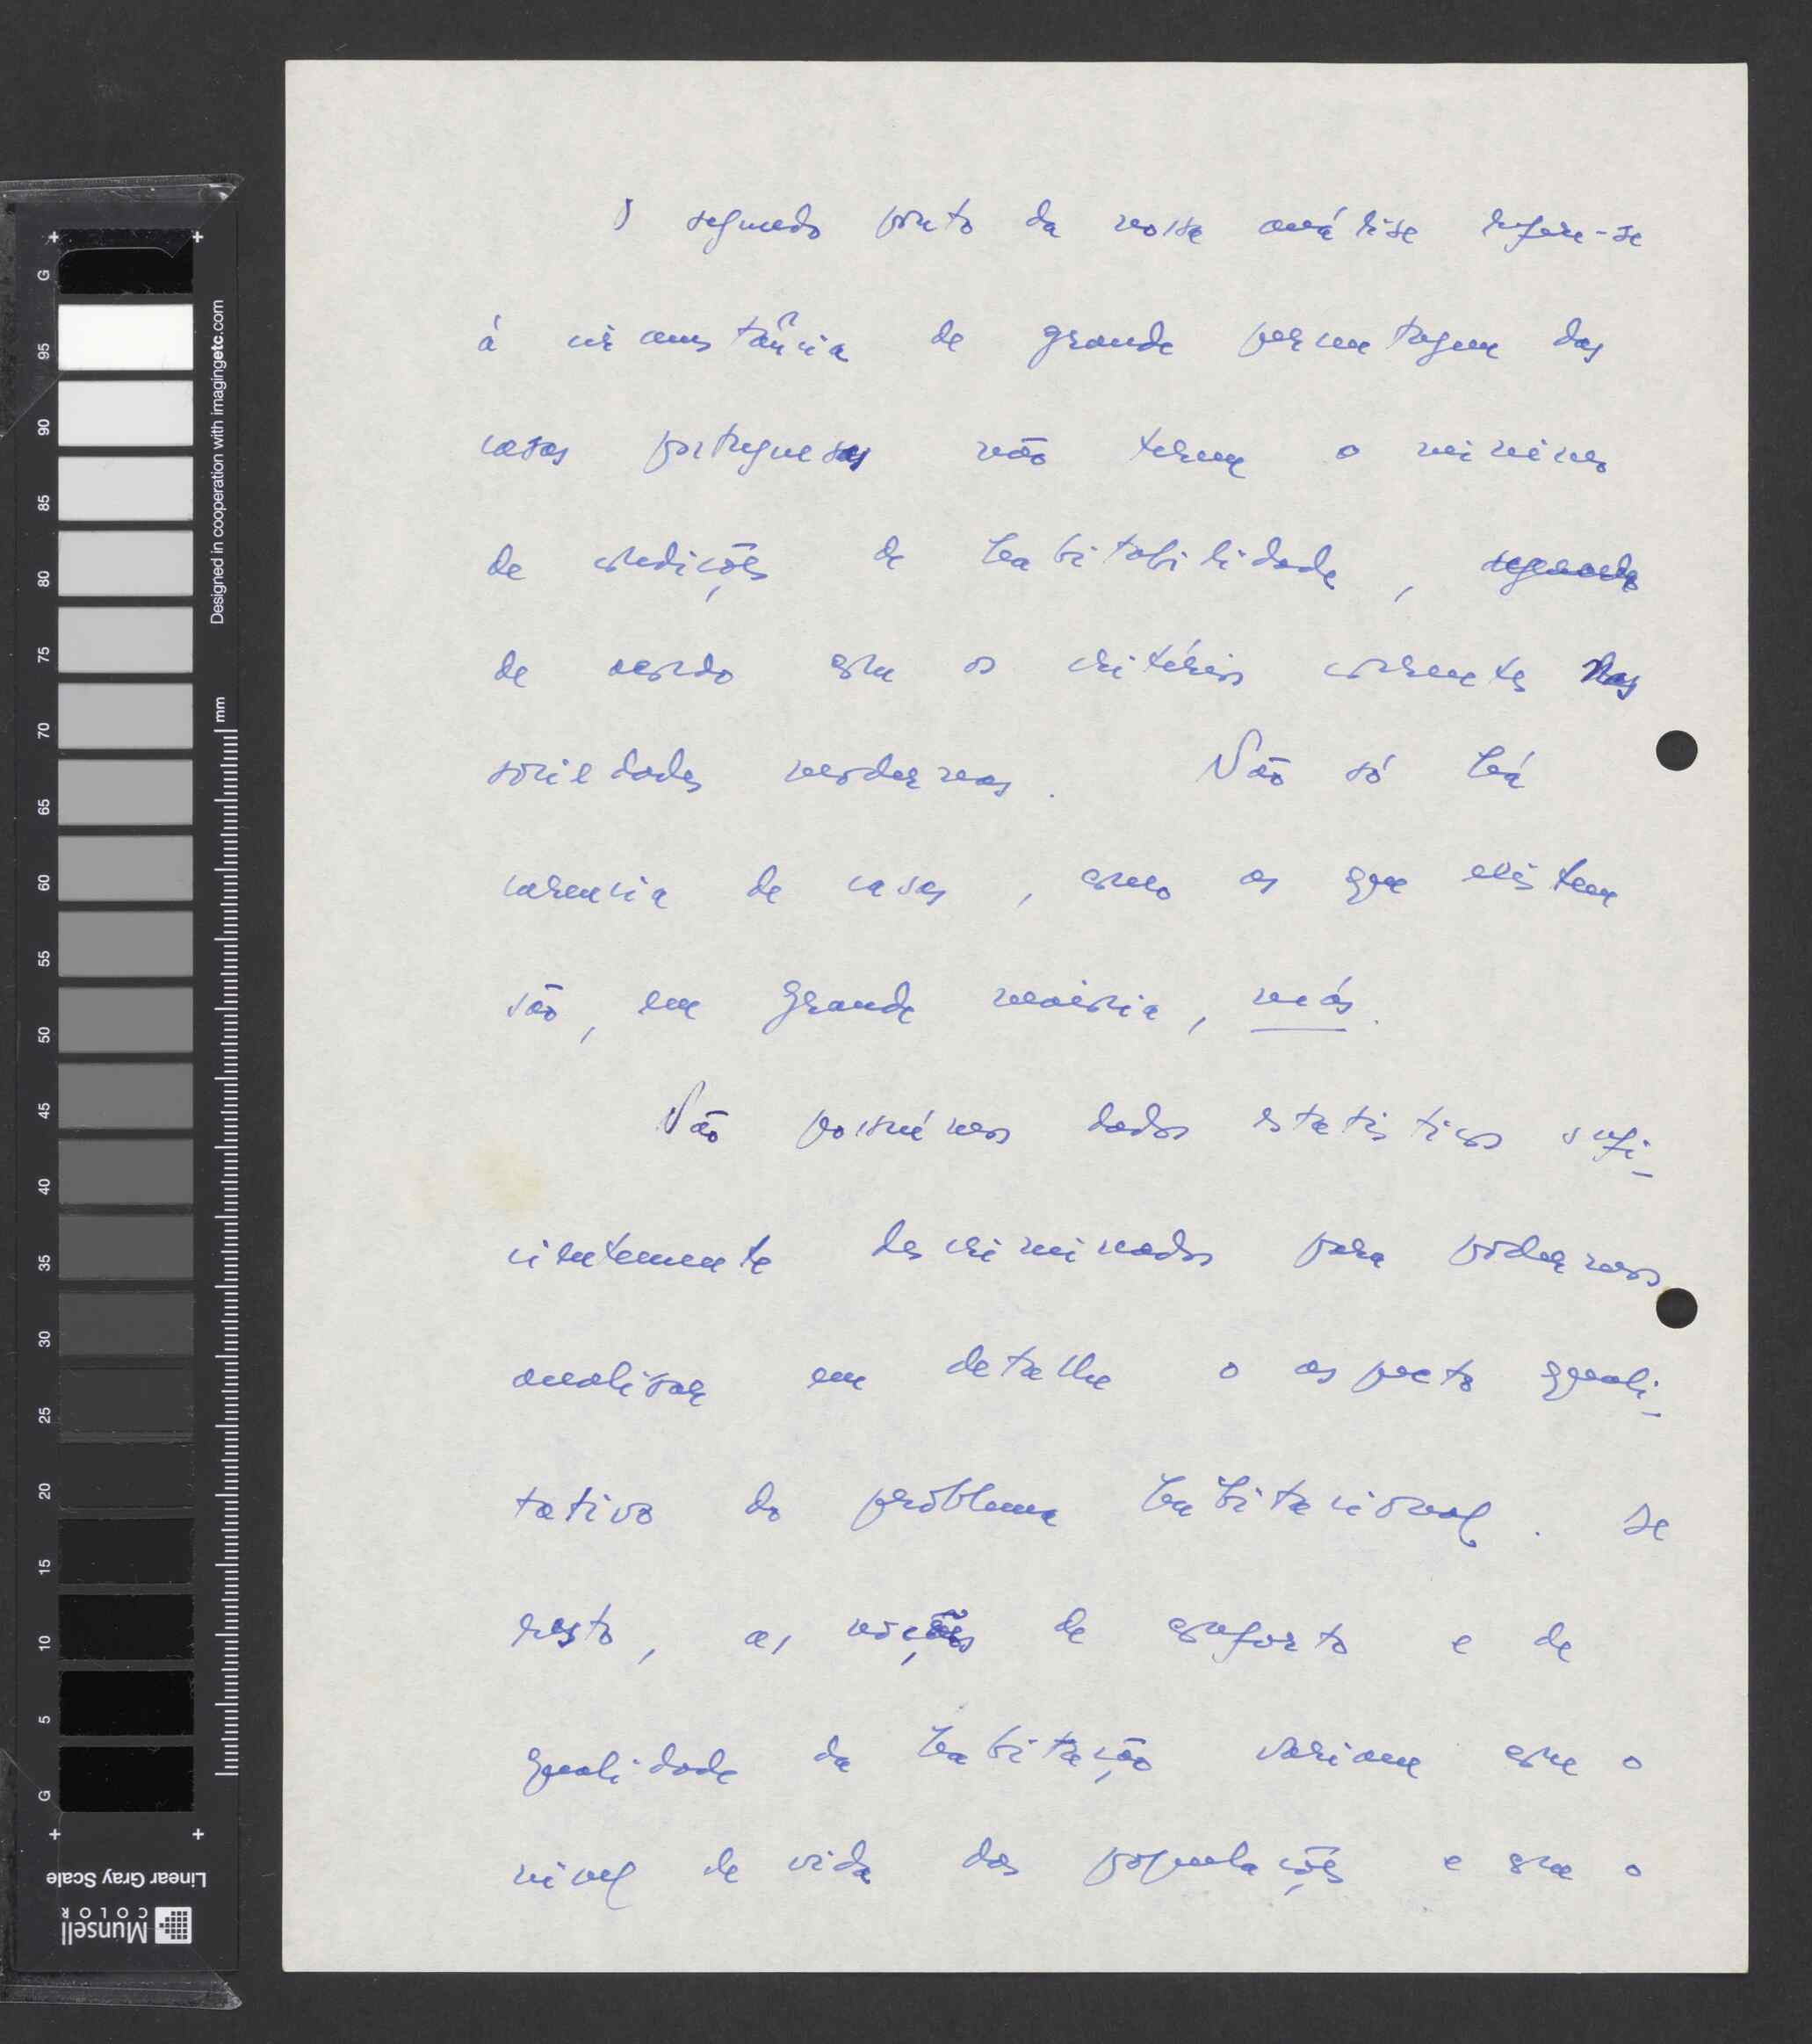 O segundo ponto da nossa análise refere-se
à circunstância de grande percentagem das
casas portuguesas não terem o minimo
de condições de habitabilidade, segundo
de acordo com os critérios correntes nas
sociedades modernas. Não só há
carencia de casas, como as que existem
são, em grande maioria, más.
Não possuímos dados estatisticos sufi-
cientemente descriminados para podermos
analisar em detalhe o aspecto quali-
tativo do problema habitacional. De
resto, as noções de conforto e de
qualidade da habitação variam com o
nivel de vida das populações e com o
G
95
90
85
80
75
70
65
60
55
50
45
40
35
30
25
20
15
10
5
G
Designed in cooperation with imagingetc.com
mm
Linear Gray Scale
Munsell
COLOR